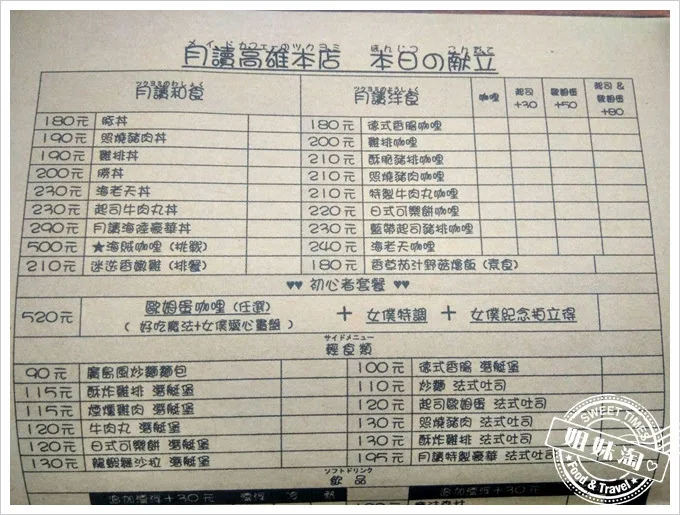 メイドカフェのツクヨミ ほんじつ こんだて
月讀高雄本店 本日の献立
ツクヨミのわしょく
月讀和食
180元 豚丼
190元 照燒豬肉丼
190元 雞排丼
200元 勝丼
230元 海老天丼
230元 起司牛肉丸丼
290元 月讀海陸豪華丼
500元 ★海賊咖哩 (挑戰)
210元 迷迭香嫩雞 (排餐)
ツクヨミのようしょく
月讀洋食 咖哩 起司+30 歐姆蛋+50 起司&歐姆蛋+80
180元 德式香腸咖哩
200元 雞排咖哩
210元 酥脆豬排咖哩
210元 照燒豬肉咖哩
210元 特製牛肉丸咖哩
220元 日式可樂餅咖哩
230元 藍帶起司豬排咖哩
240元 海老天咖哩
180元 香草茄汁野菇燉飯 (素食)
♥♥ 初心者套餐 ♥♥
520元 歐姆蛋咖哩 (任選) + 女僕特調 + 女僕紀念拍立得
( 好吃魔法+女僕愛心畫盤 )
サイドメニュー
輕食類
90元 廣島風炒麵麵包
115元 酥炸雞排 潛艇堡
115元 煙燻雞肉 潛艇堡
120元 牛肉丸 潛艇堡
120元 日式可樂餅 潛艇堡
130元 龍蝦沙拉 潛艇堡
100元 德式香腸 潛艇堡
110元 炒麵 法式吐司
120元 起司歐姆蛋 法式吐司
130元 照燒豬肉 法式吐司
130元 酥炸雞排 法式吐司
195元 月讀特製豪華 法式吐司
ソフトドリンク
飲品
追加續杯+30元 續杯 冷 熱 追加續杯+30元
SWEET TIMES
姐妹淘
Food & Travel